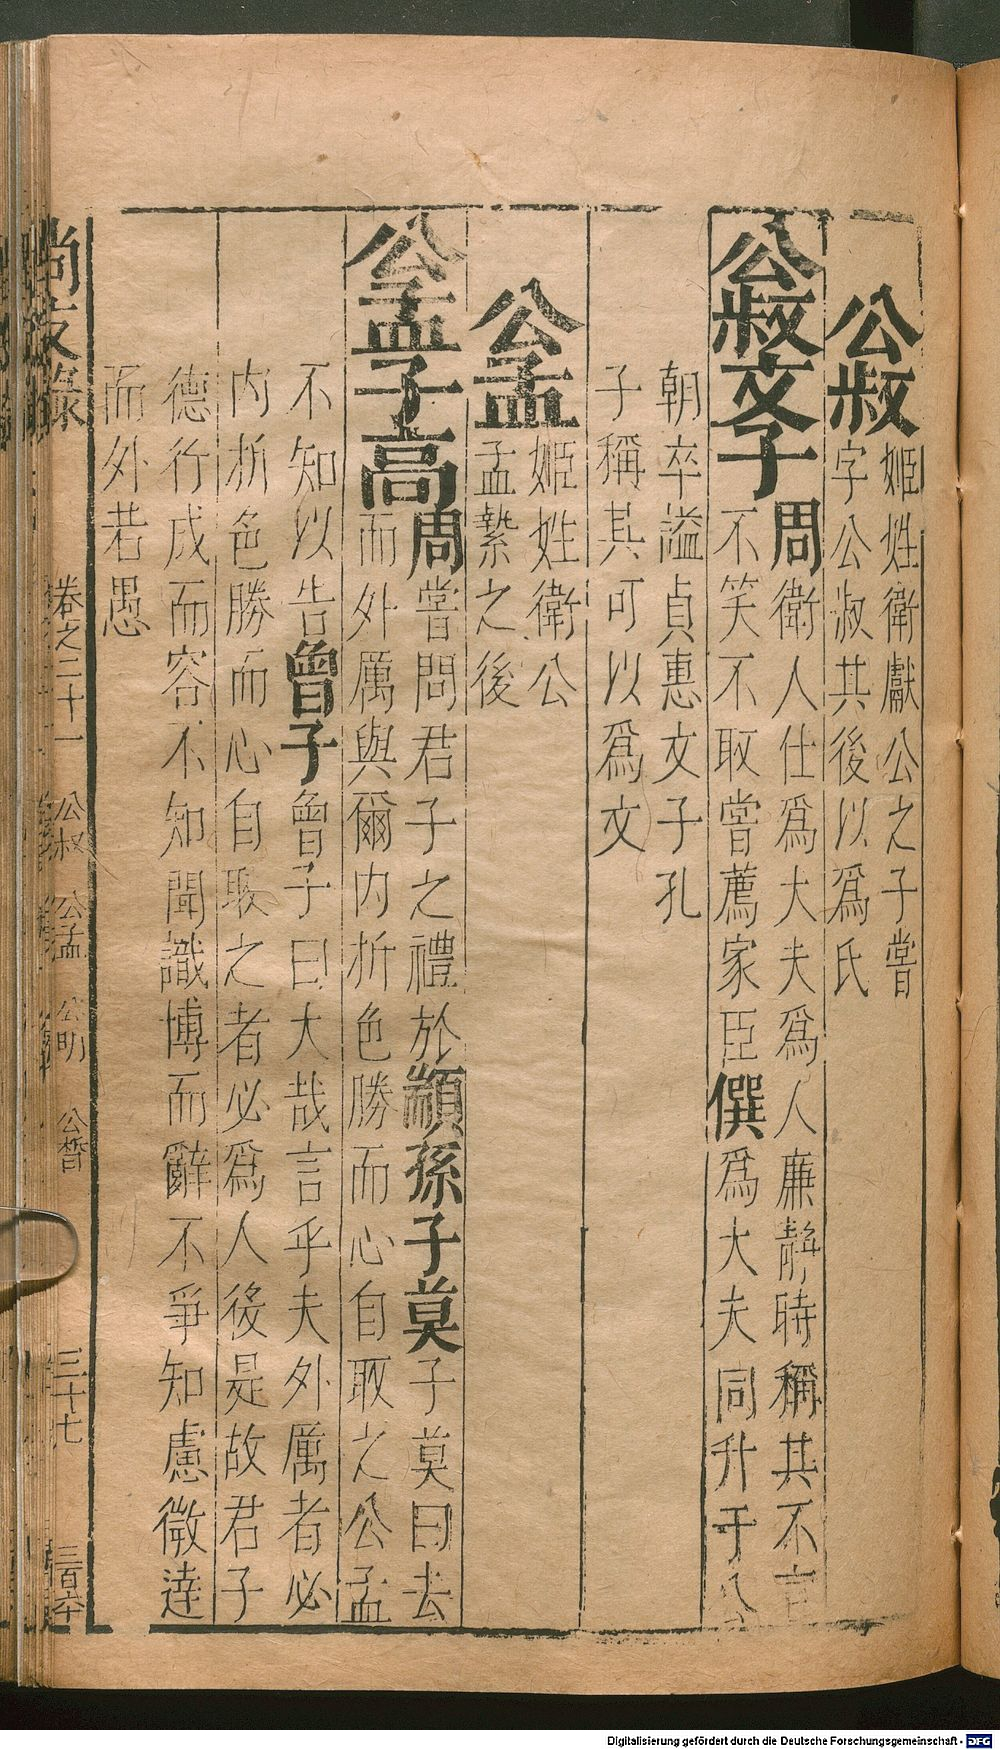 公叔
姬姓衛獻公之子嘗
字公叔其後以爲氏
公叔文子
周衛人仕爲大夫爲人廉靜時稱其不言
不笑不取嘗薦家臣僎爲大夫同升于公
朝卒謚貞惠文子孔
子稱其可以爲文
公孟
姬姓衛公
孟縶之後
公孟子高
周嘗問君子之禮於顓孫子莫子莫曰去
而外厲與爾内折色勝而心自取之公孟
不知以告曾子曾子曰大哉言乎夫外厲者必
内折色勝而心自取之者必爲人後是故君子
德行成而容不知聞識博而辭不爭知慮微達
而外若愚
尚友錄 卷之二十一 公叔 公孟 公明 公晳 三十七 三百六
Digitalisierung gefördert durch die Deutsche Forschungsgemeinschaft - DFG